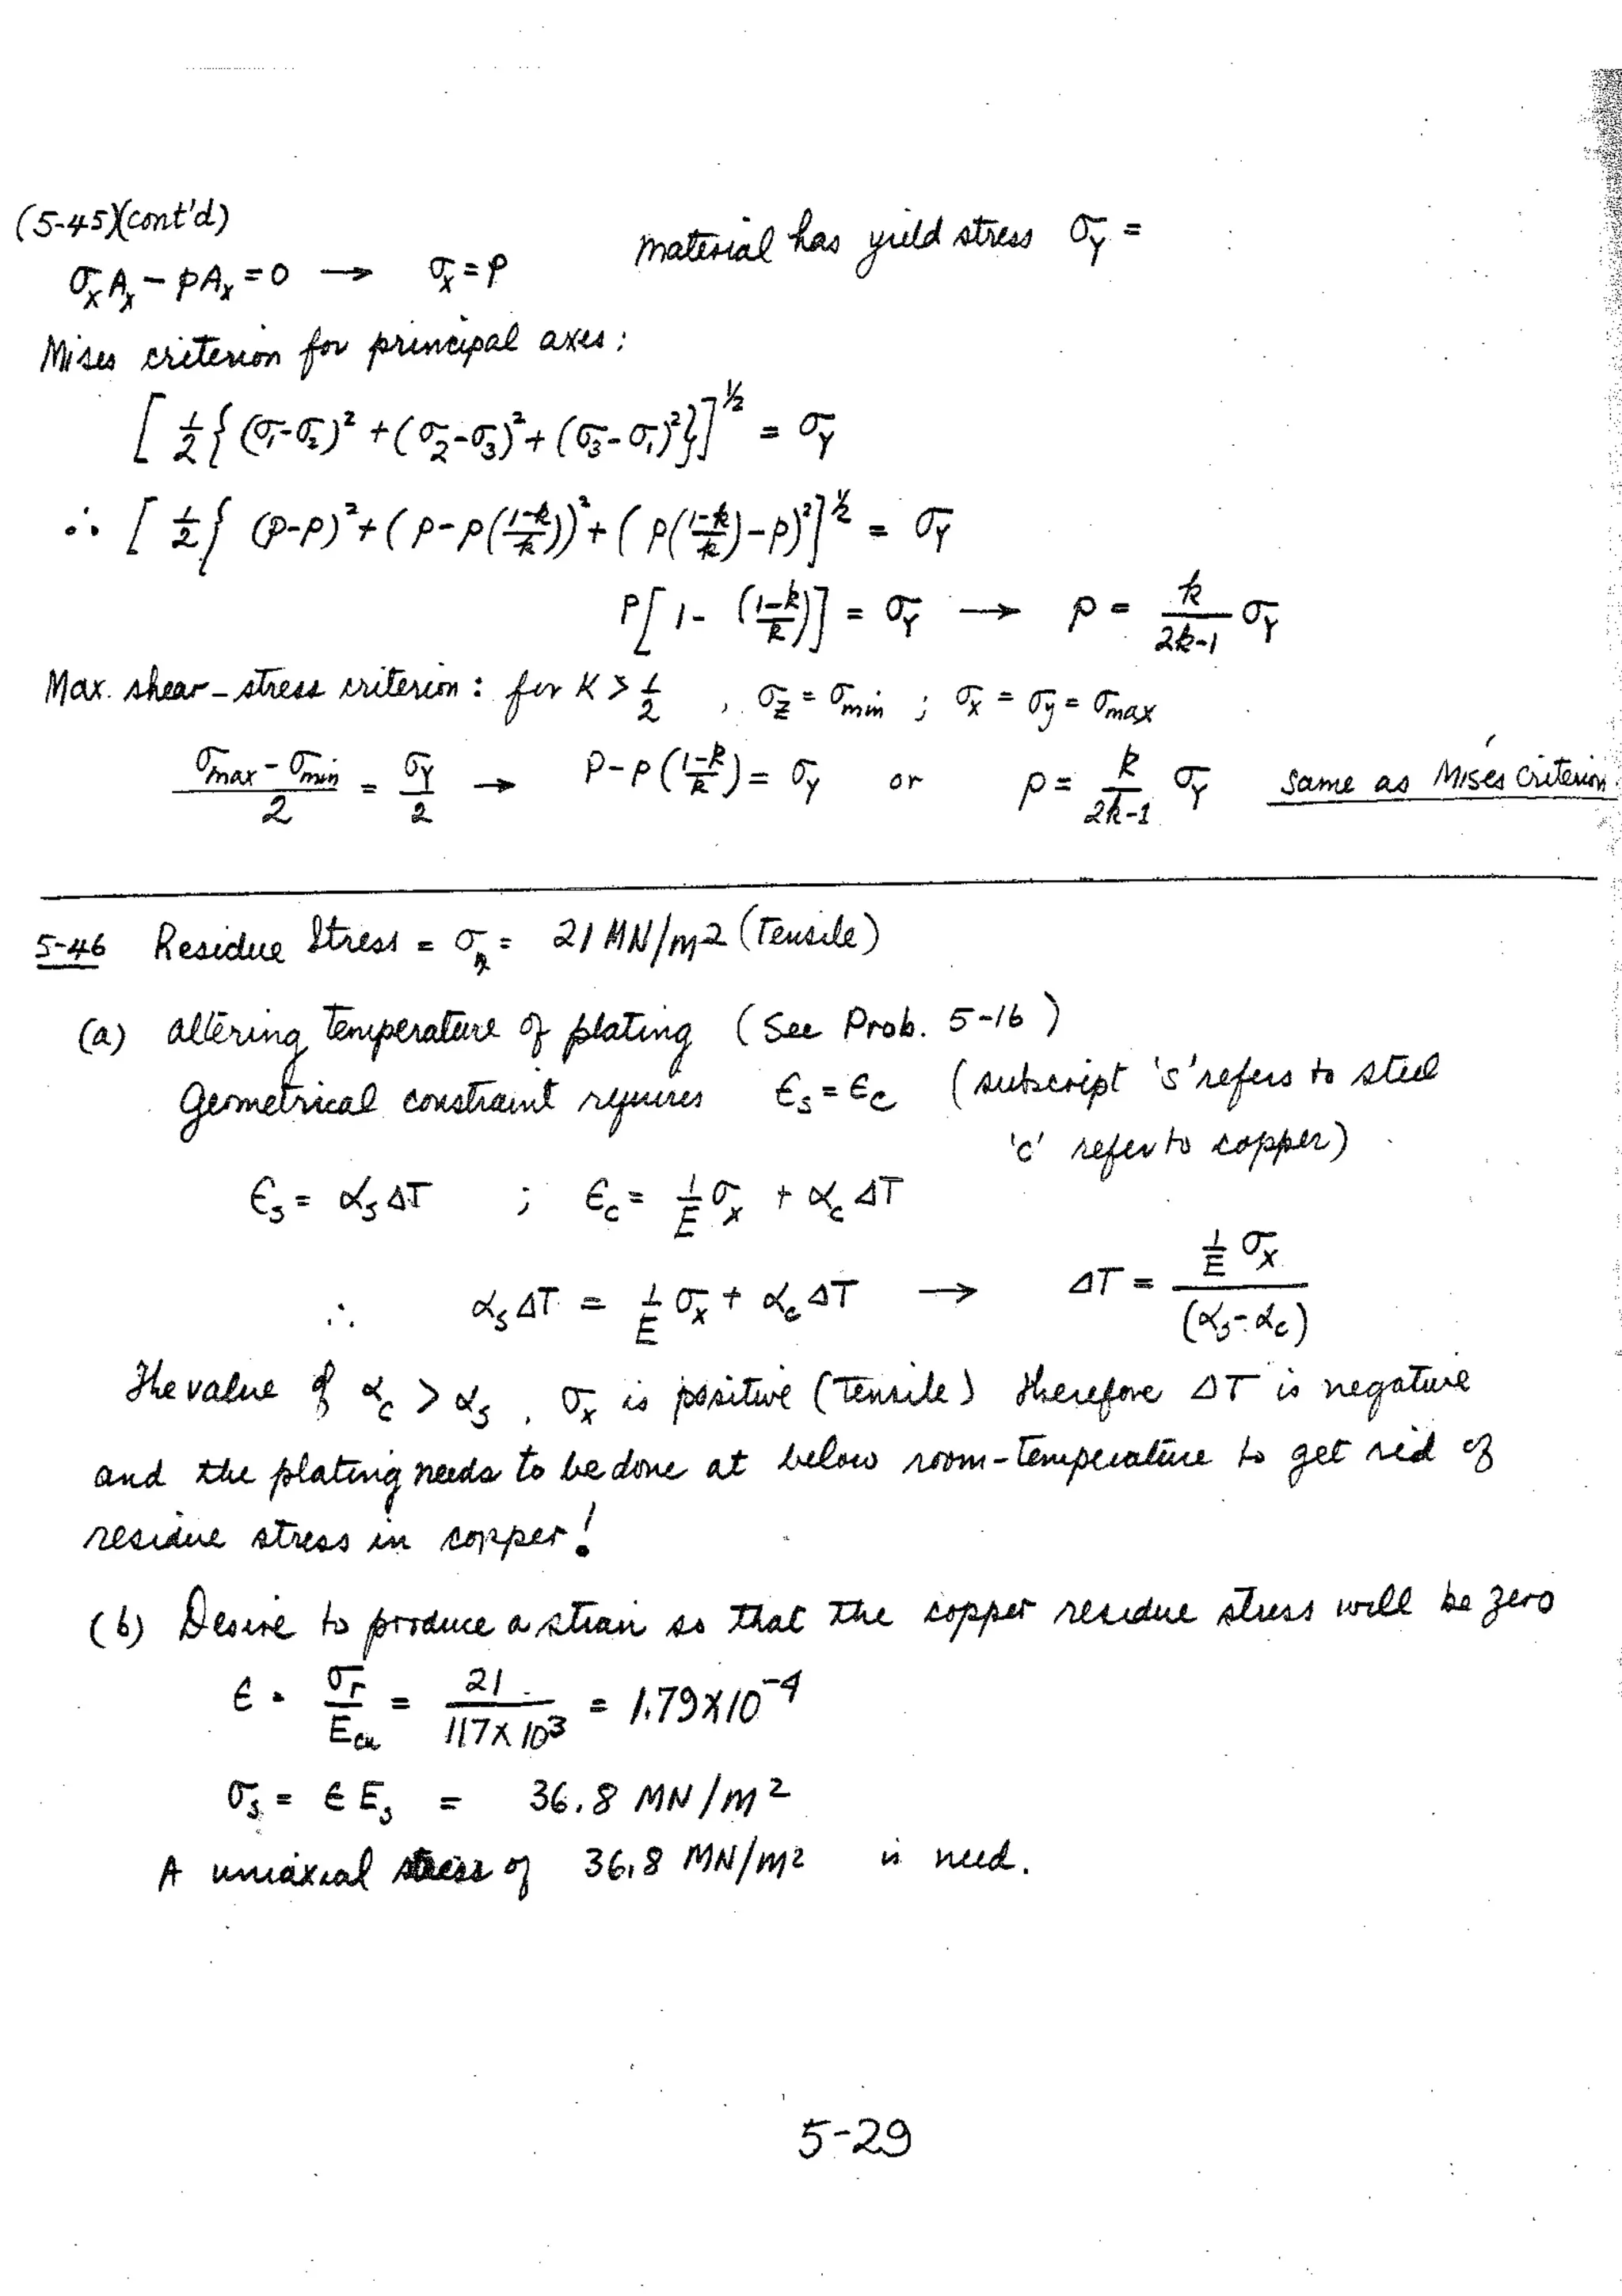 (5-45)(cont'd)
material has yield stress σ_Y =
σ_x A_x - pA_x = 0 → σ_x = p
Mises criterion for principal axes :
[ 1/2 { (σ_1-σ_2)² + (σ_2-σ_3)² + (σ_3-σ_1)² } ]^½ = σ_Y
∴ [ 1/2 { (p-p)² + ( p-p((1-k)/k))² + ( p((1-k)/k)-p)² ]^½ = σ_Y
P[ 1- ((1-k)/k)] = σ_Y → p = k/(2k-1) σ_Y
Max. shear-stress criterion : for K > 1/2 , σ_z = σ_min ; σ_x = σ_y = σ_max
(σ_max - σ_min)/2 = σ_Y/2 → p-p((1-k)/k) = σ_Y or p = k/(2k-1) σ_Y Same as Mises Criterion.
5-46 Residue Stress = σ_r = 21 MN/m2 (Tensile)
(a) altering temperature of plating ( See Prob. 5-16 )
Geometrical constraint requires ϵ_s = ϵ_c ( subscript 's' refers to steel
'c' refer to copper)
ϵ_s = α_s ΔT ; ϵ_c = 1/E σ_x + α_c ΔT
∴ α_s ΔT = 1/E σ_x + α_c ΔT → ΔT = (1/E σ_x)/(α_s - α_c)
The value of α_c > α_s , σ_x is positive (Tensile) therefore ΔT is negative
and the plating needs to be done at below room-temperature to get rid of
residue stress in copper!
(b) Desire to produce a strain so that the copper residue stress will be zero
ϵ = σ_r/E_cu = 21/(117 x 10³) = 1.79 x 10⁻⁴
σ_s = ϵ E_s = 36.8 MN/m²
A uniaxial stress of 36.8 MN/m2 is need.
5-29